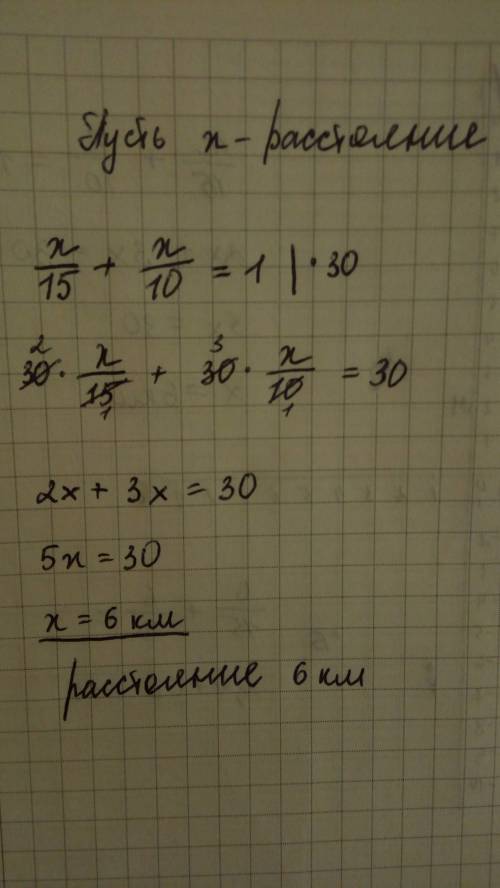 Пусть x - расстояние
x/15 + x/10 = 1 | · 30
30 2 · x/15 1 + 30 3 · x/10 1 = 30
2x + 3x = 30
5x = 30
x = 6 км
расстояние 6 км